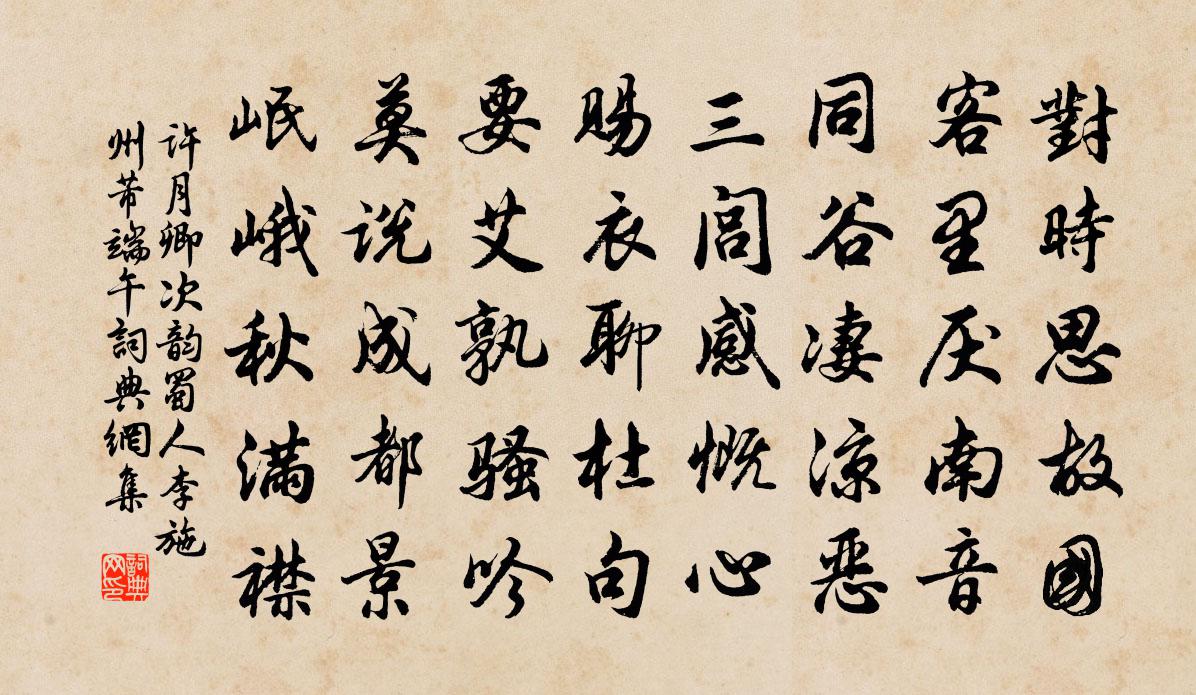 對時思故國
客里厌南音
同谷凄凉惡
三閭感慨心
賜衣聊杜句
要艾孰騷吟
莫说成都景
岷峨秋满襟
许月卿次韵蜀人李施
州芾端午詞典網集
詞典网印